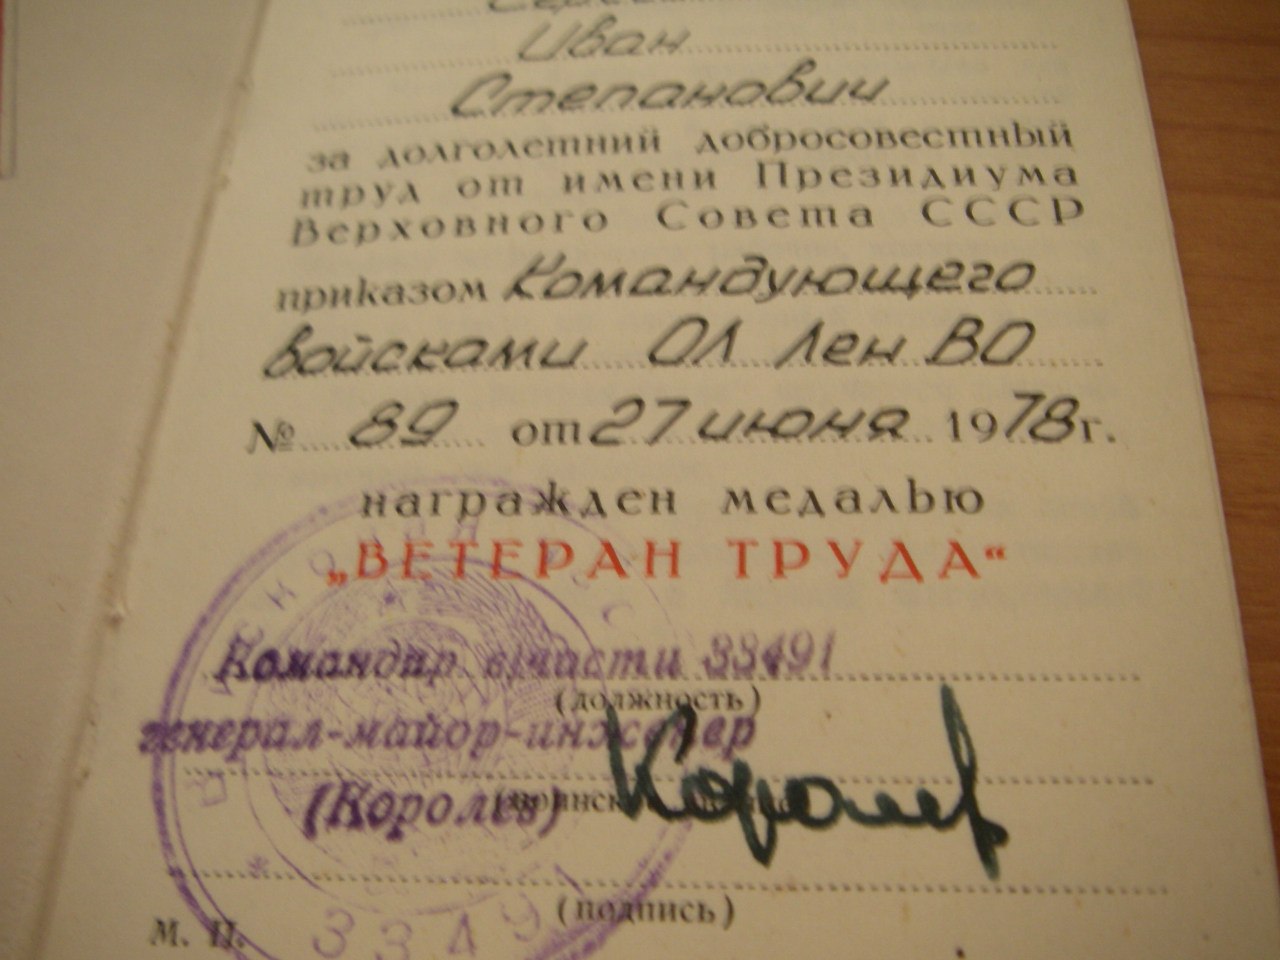 Иван
Степанович
за долголетний добросовестный
труд от имени Президиума
Верховного Совета СССР
приказом Командующего
войсками ОЛ Лен ВО
№ 89 от 27 июня 1978г.
награжден медалью
„ВЕТЕРАН ТРУДА“
Командир в/части 33491
(должность)
генерал-майор-инженер
(Королев)
Королев
(подпись)
М. П.
3349